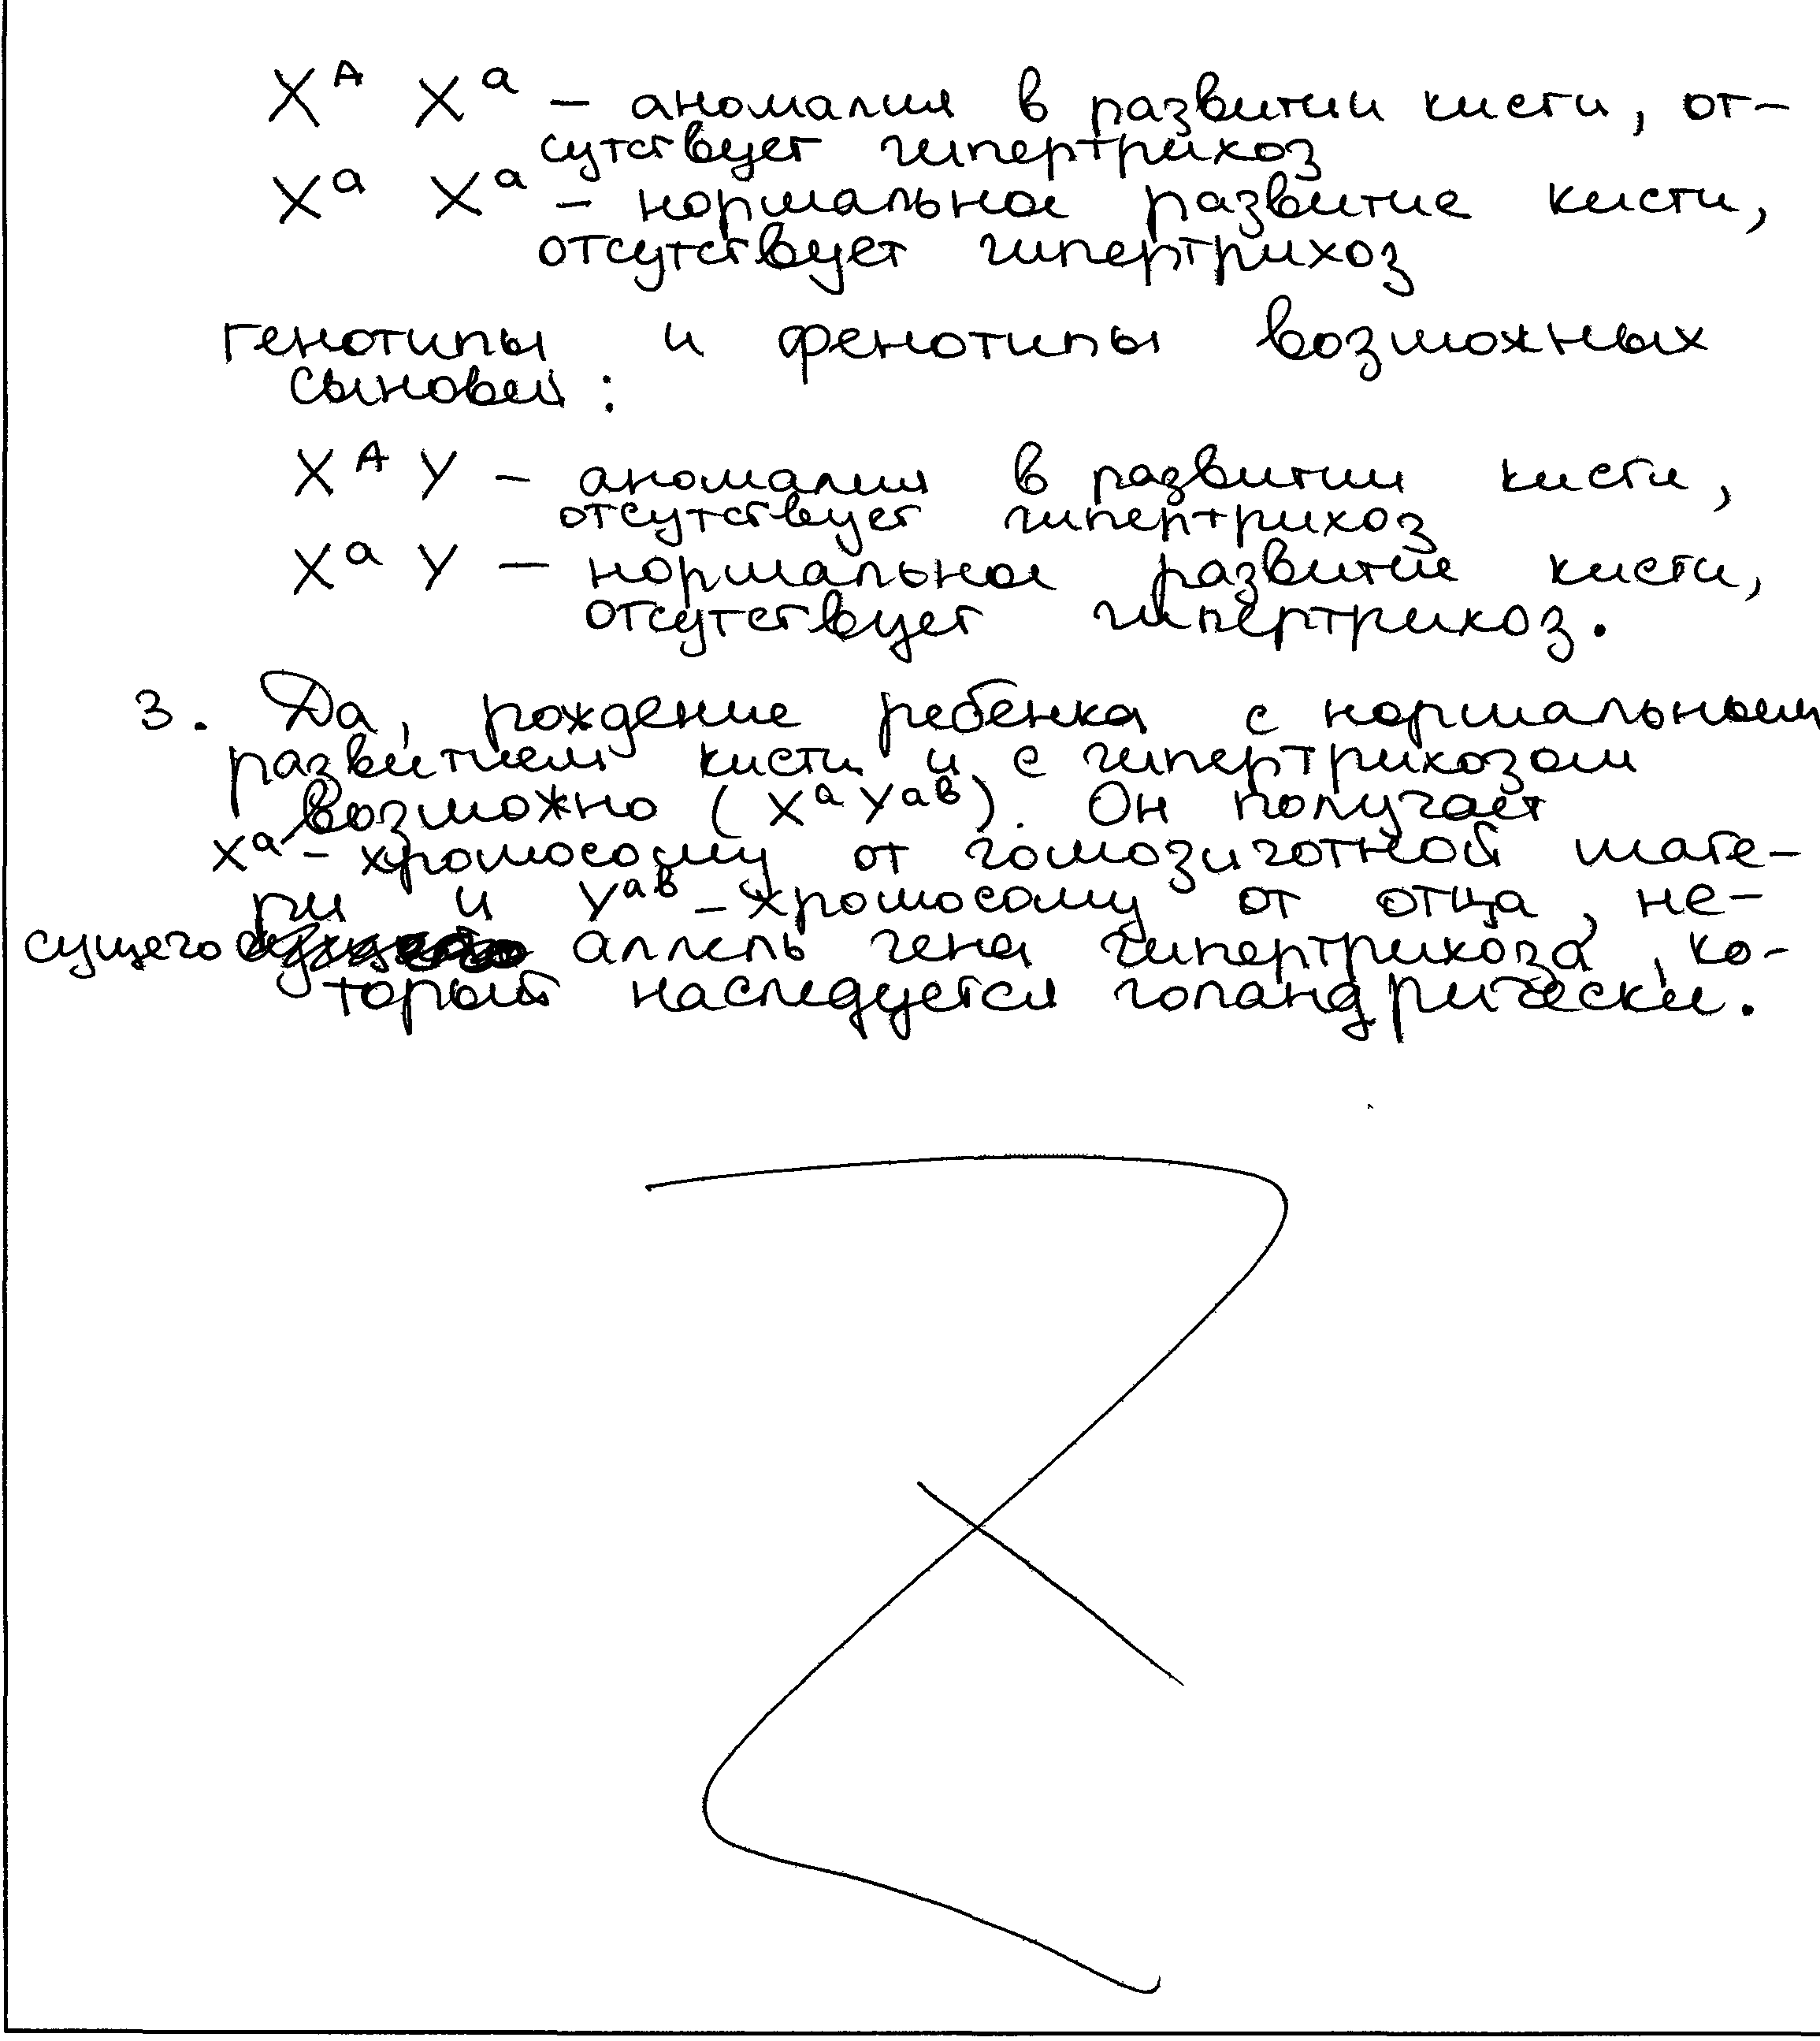 X^A X^a – аномалия в развитии кисти, от-
сутствует гипертрихоз
X^a X^a – нормальное развитие кисти,
отсутствует гипертрихоз
генотипы и фенотипы возможных
сыновей:
X^A Y – аномалия в развитии кисти,
отсутствует гипертрихоз
X^a Y – нормальное развитие кисти,
отсутствует гипертрихоз.
3. Да, рождение ребенка с нормальным
развитием кисти и с гипертрихозом
возможно (X^a Y^aв). Он получает
X^a – хромосому от гомозиготной мате-
ри и Y^aв – хромосому от отца, не-
сущего аллель гена гипертрихоза, ко-
торый наследуется голандрически.